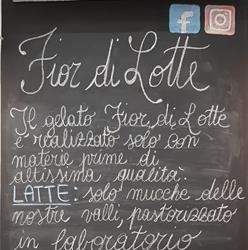 Fior di Lotte
Il gelato Fior di Lotte
è realizzato solo con
materie prime di
altissima qualità.
LATTE: solo mucche delle
nostre valli, pastorizzato
in laboratorio